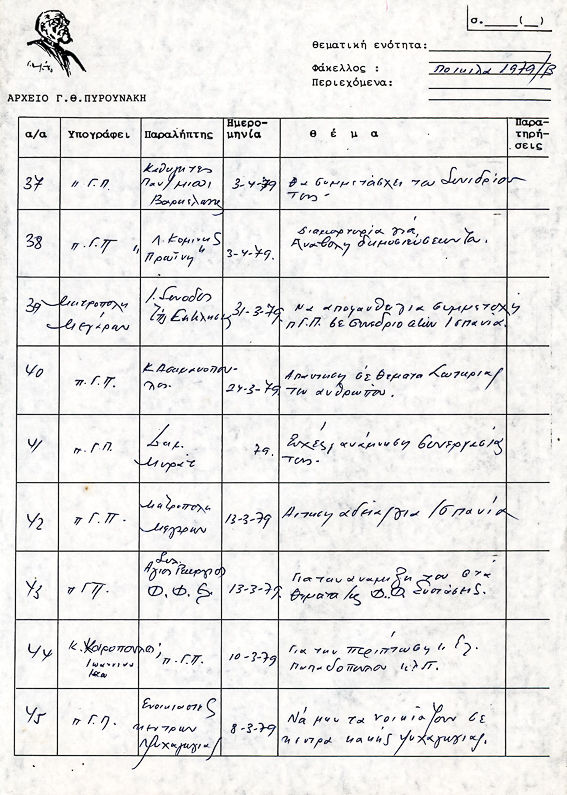 σ.____(__)
Θεματική ενότητα:
Φάκελλος : Ποικιλα 1979/Β
Περιεχόμενα:
ΑΡΧΕΙΟ Γ.Θ.ΠΥΡΟΥΝΑΚΗ
α/α Υπογράφει Παραλήπτης Ημερομηνία θ έ μ α Παρατηρήσεις
37 π Γ.Π. Καθηγητες Παν/μιου Βαρκελωνης 3-4-79 Θα συμμετάσχει του Συνεδρίου τους.
38 π.Γ.Π " Λ. Κομινης Πρωϊνη" 3-4-79. Διαμαρτυρία γιά Αναβολη δημοσιεύσεων
39 Μητροπολη Μεγάρων Ι. Συνοδος της Εκκλησ 31-3-79 Να αποφανθει για συμμετοχη π Γ.Π. σέ Συνεδριο στην Ισπανια.
40 π. Γ.Π. 24-3-79 Απαντηση σε θεματα Σωτηριας του ανθρωπου.
41 π. Γ.Π. Δημ. Μυράτ 79. Ευχές, αναμνηση συνεργασίας τους.
42 π Γ.Π. Μητροπολη Μεγαρων 13-3-79 Αιτηση αδειας για Ισπανία
43 π Γ.Π. Συλ. Αγιος Γεωργιος Φ.Φ.Σ. 13-3-79. Για την αναμιξη του στα θεματα της Φ.Φ. Συστάσης.
44 Κ. Ιωαννινα π.Γ.Π. 10-3-79 Για την περιπτωση Παπαδοπουλου κλπ.
45 π Γ.Π. Ενοικιαστες κεντρων Ψυχαγωγιας 8-3-79 Νά μην τα νοικιάζουν σε κεντρα κακής ψυχαγωγιας.